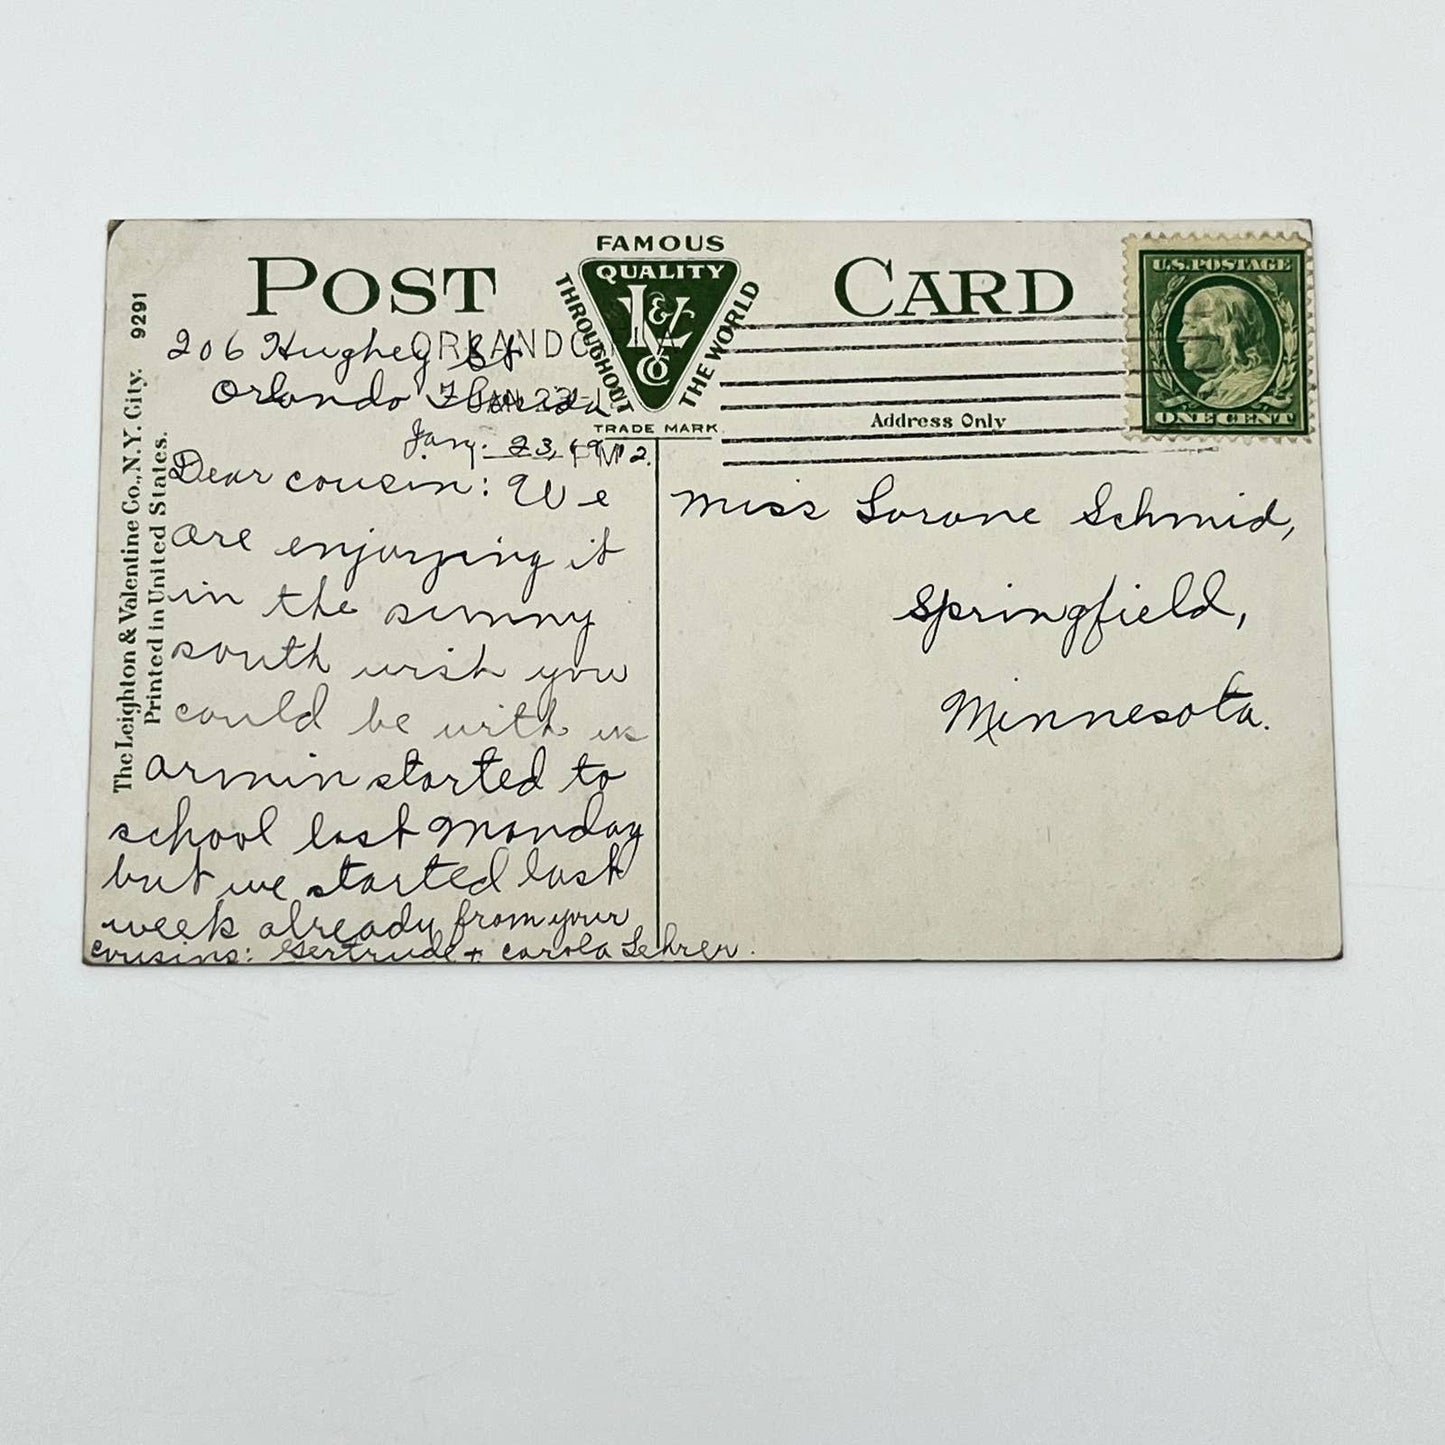 POST CARD
FAMOUS
QUALITY
L&V
CO
THROUGHOUT
THE WORLD
TRADE MARK
U.S. POSTAGE
ONE CENT
ORLANDO
JAN 23
PM
Address Only
9291
The Leighton & Valentine Co., N.Y. City.
Printed in United States.
206 Hughey St
Orlando Florida
Jany. 23, 1912.
Dear cousin: We
are enjoying it
in the sunny
south wish you
could be with us
armin started to
school last Monday
but we started last
week already from your
cousins: Gertrude + Carola Lehrer.
Miss Lorane Schmid,
Springfield,
Minnesota.